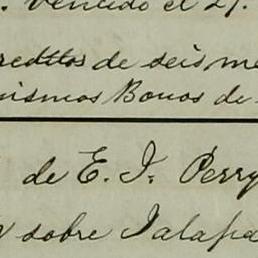 . vencido el 27.
creditos de seis me
mismos Bonos de
de E. J. Perry
y sobre Jalapa